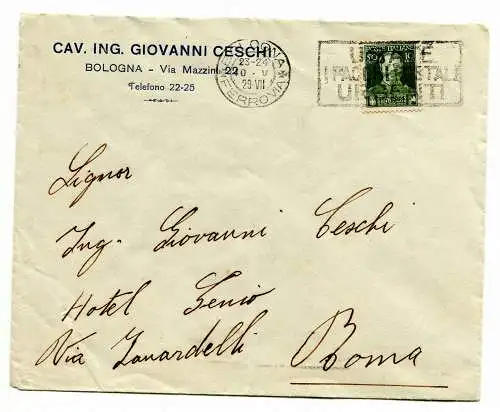 CAV. ING. GIOVANNI CESCHI
BOLOGNA - Via Mazzini 22
Telefono 22-25
BOLOGNA
23-24
10 · V
29 VII
FERROVIA
POSTE ITALIANE
50
URGENTI
Signor
Ing. Giovanni Ceschi
Hotel Genio
Via Zanardelli Roma